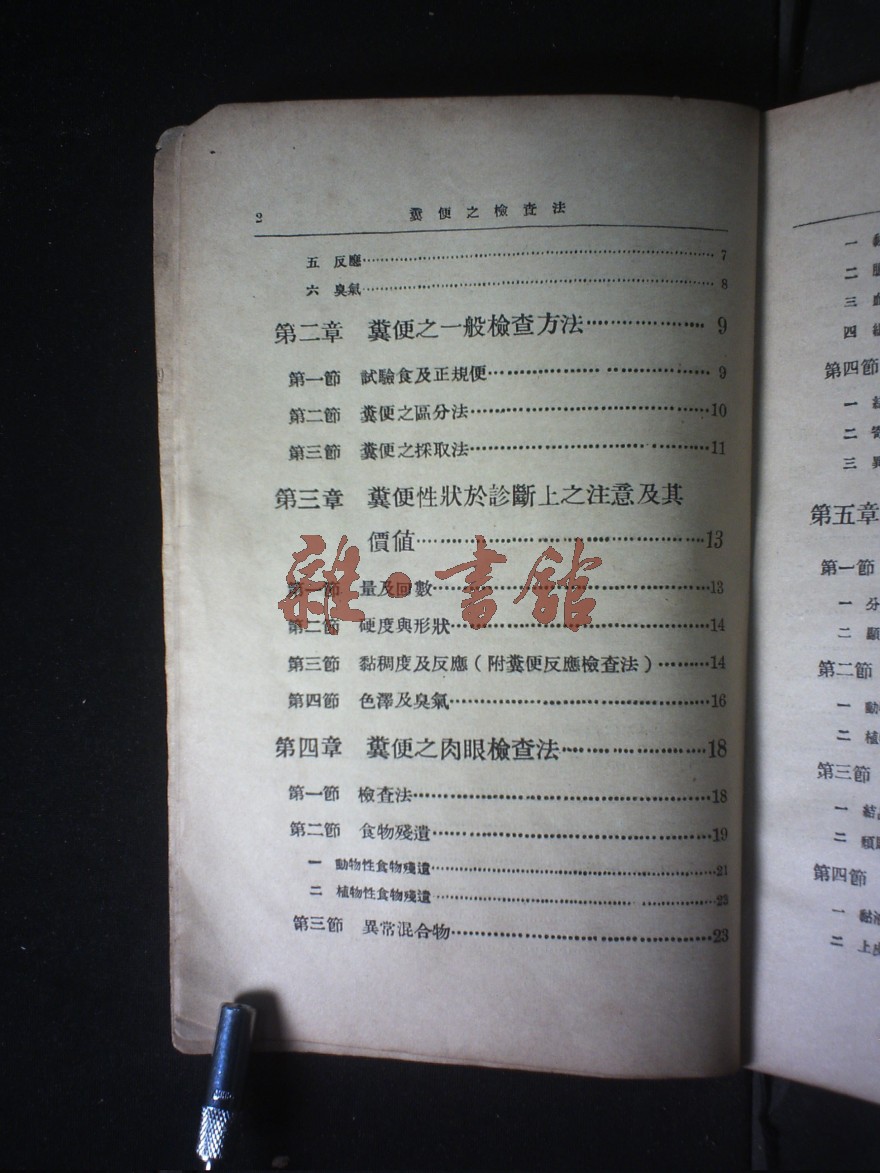 2 糞便之檢查法
五 反應 7
六 臭氣 8
第二章 糞便之一般檢查方法 9
第一節 試驗食及正規便 9
第二節 糞便之區分法 10
第三節 糞便之採取法 11
第三章 糞便性狀於診斷上之注意及其
價值 13
第一節 量及回數 13
第二節 硬度與形狀 14
第三節 黏稠度及反應(附糞便反應檢查法) 14
第四節 色澤及臭氣 16
第四章 糞便之肉眼檢查法 18
第一節 檢查法 18
第二節 食物殘遺 19
一 動物性食物殘遺 21
二 植物性食物殘遺
第三節 異常混合物 23
雜·書館
一
二
三
四
第四節
一
二
三
第五章
第一節
一 分
二 顯
第二節
一 動
二 植
第三節
一 結
二
第四節
一 黏
二 上